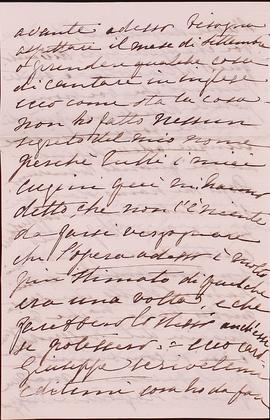 avante adesso bisogna
aspettare il mese di settembre
o prendere qualche cosa
di cantare in inglese
ecco come sta la cosa
non ho fatto nessun
segreto del mio nome
perchè tutti i miei
cugini qui mi hanno
detto che non c'è niente
da farsi vergognare
che l'opera adesso è molto
più stimato di quel che
era una volta, e che
farebbero lo stesso anch'essi
se potessero = ecco caro
Giuseppe scrivetemi
e ditemi cosa ho da fare